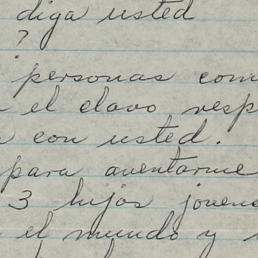 diga usted
?
personas com
el clavo resp
con usted.
para aventarme
3 hijos jovene
el mundo y